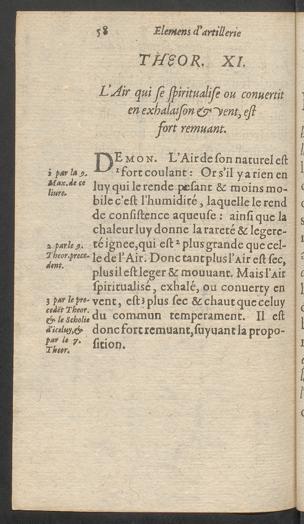 58 Elemens d'artillerie
THEOR. XI.
L'Air qui se spiritualise ou conuertit
en exhalaison & vent, est
fort remuant.
DEMON. L'Air de son naturel est
¹ fort coulant: Or s'il y a rien en
luy qui le rende pesant & moins mo-
bile c'est l'humidité, laquelle le rend
de consistence aqueuse: ainsi que la
chaleur luy donne la rareté & legere-
té ignee, qui est ² plus grande que cel-
le de l'Air. Donc tant plus l'Air est sec,
plus il est leger & mouuant. Mais l'Air
spiritualisé, exhalé, ou conuerty en
vent, est ³ plus sec & chaut que celuy
du commun temperament. Il est
donc fort remuant, suyuant la propo-
sition.
1 par la 9.
Max. de ce
liure.
2 par le 9.
Theor. prece-
dent.
3 par le pre-
cedẽt Theor.
& le Scholie
d'iceluy, &
par le 7.
Theor.